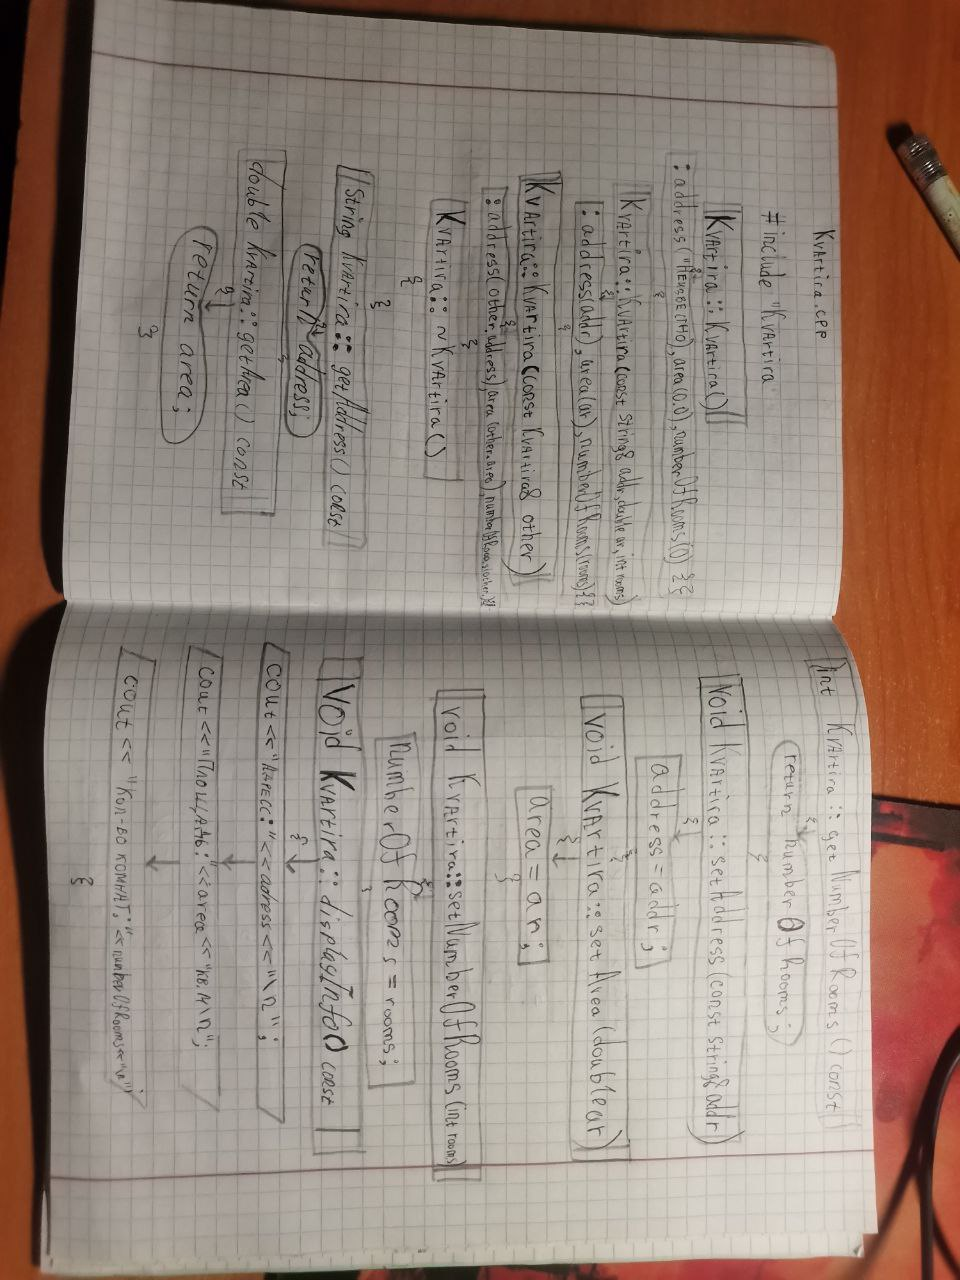 Kvartira.cpp
#include "Kvartira
Kvartira::Kvartira()
{
:address("Неизвестно), area(0.0), numberOfRooms(0) {}
}
Kvartira::Kvartira(const string& addr, double ar, int rooms)
{
:address(addr), area(ar), numberOfRooms(rooms){}
}
Kvartira::Kvartira(const Kvartira& other)
{
:address(other.address), area(other.area),
}
Kvartira::~Kvartira()
{
}
String Kvartira::getAddress() const
{
return address;
}
double Kvartira::getArea() const
{
return area;
}
int Kvartira::getNumberOfRooms() const
{
return numberOfRooms;
}
void Kvartira::setAddress(const string& addr)
{
address=addr;
}
void Kvartira::setArea(double ar)
{
area=ar;
}
void Kvartira::setNumberOfRooms(int rooms)
{
numberOfRooms=rooms;
}
Void Kvartira::displayInfo() const
{
cout<<"Адресс:"<<adress<<"\n";
cout<<"Площадь:"<<area<<"кв.м\n";
cout<<"Кол-во комнат:"<<numberOfRooms<<"\n";
}